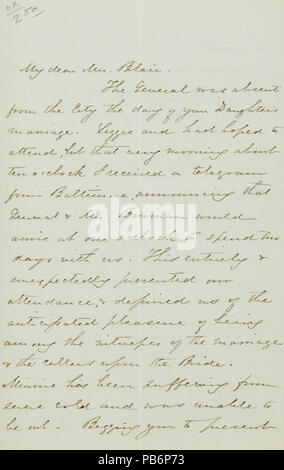 My dear Mr. Blair.
The General was absent
from the City the day of your Daughter's
marriage. Lizzie and I had hoped to
attend, but that very morning about
ten o'clock I received a telegram
from Baltimore, announcing that
General & Mrs. Bowman would
arrive at one o'clock to spend two
days with us. This entirely &
unexpectedly prevented our
attendance, & deprived us of the
anticipated pleasure of being
among the witnesses of the marriage
& the callers upon the Bride.
Minnie has been suffering from
severe cold and was unable to
be out. Begging you to present
alamy
Image ID: PB6P73
www.alamy.com